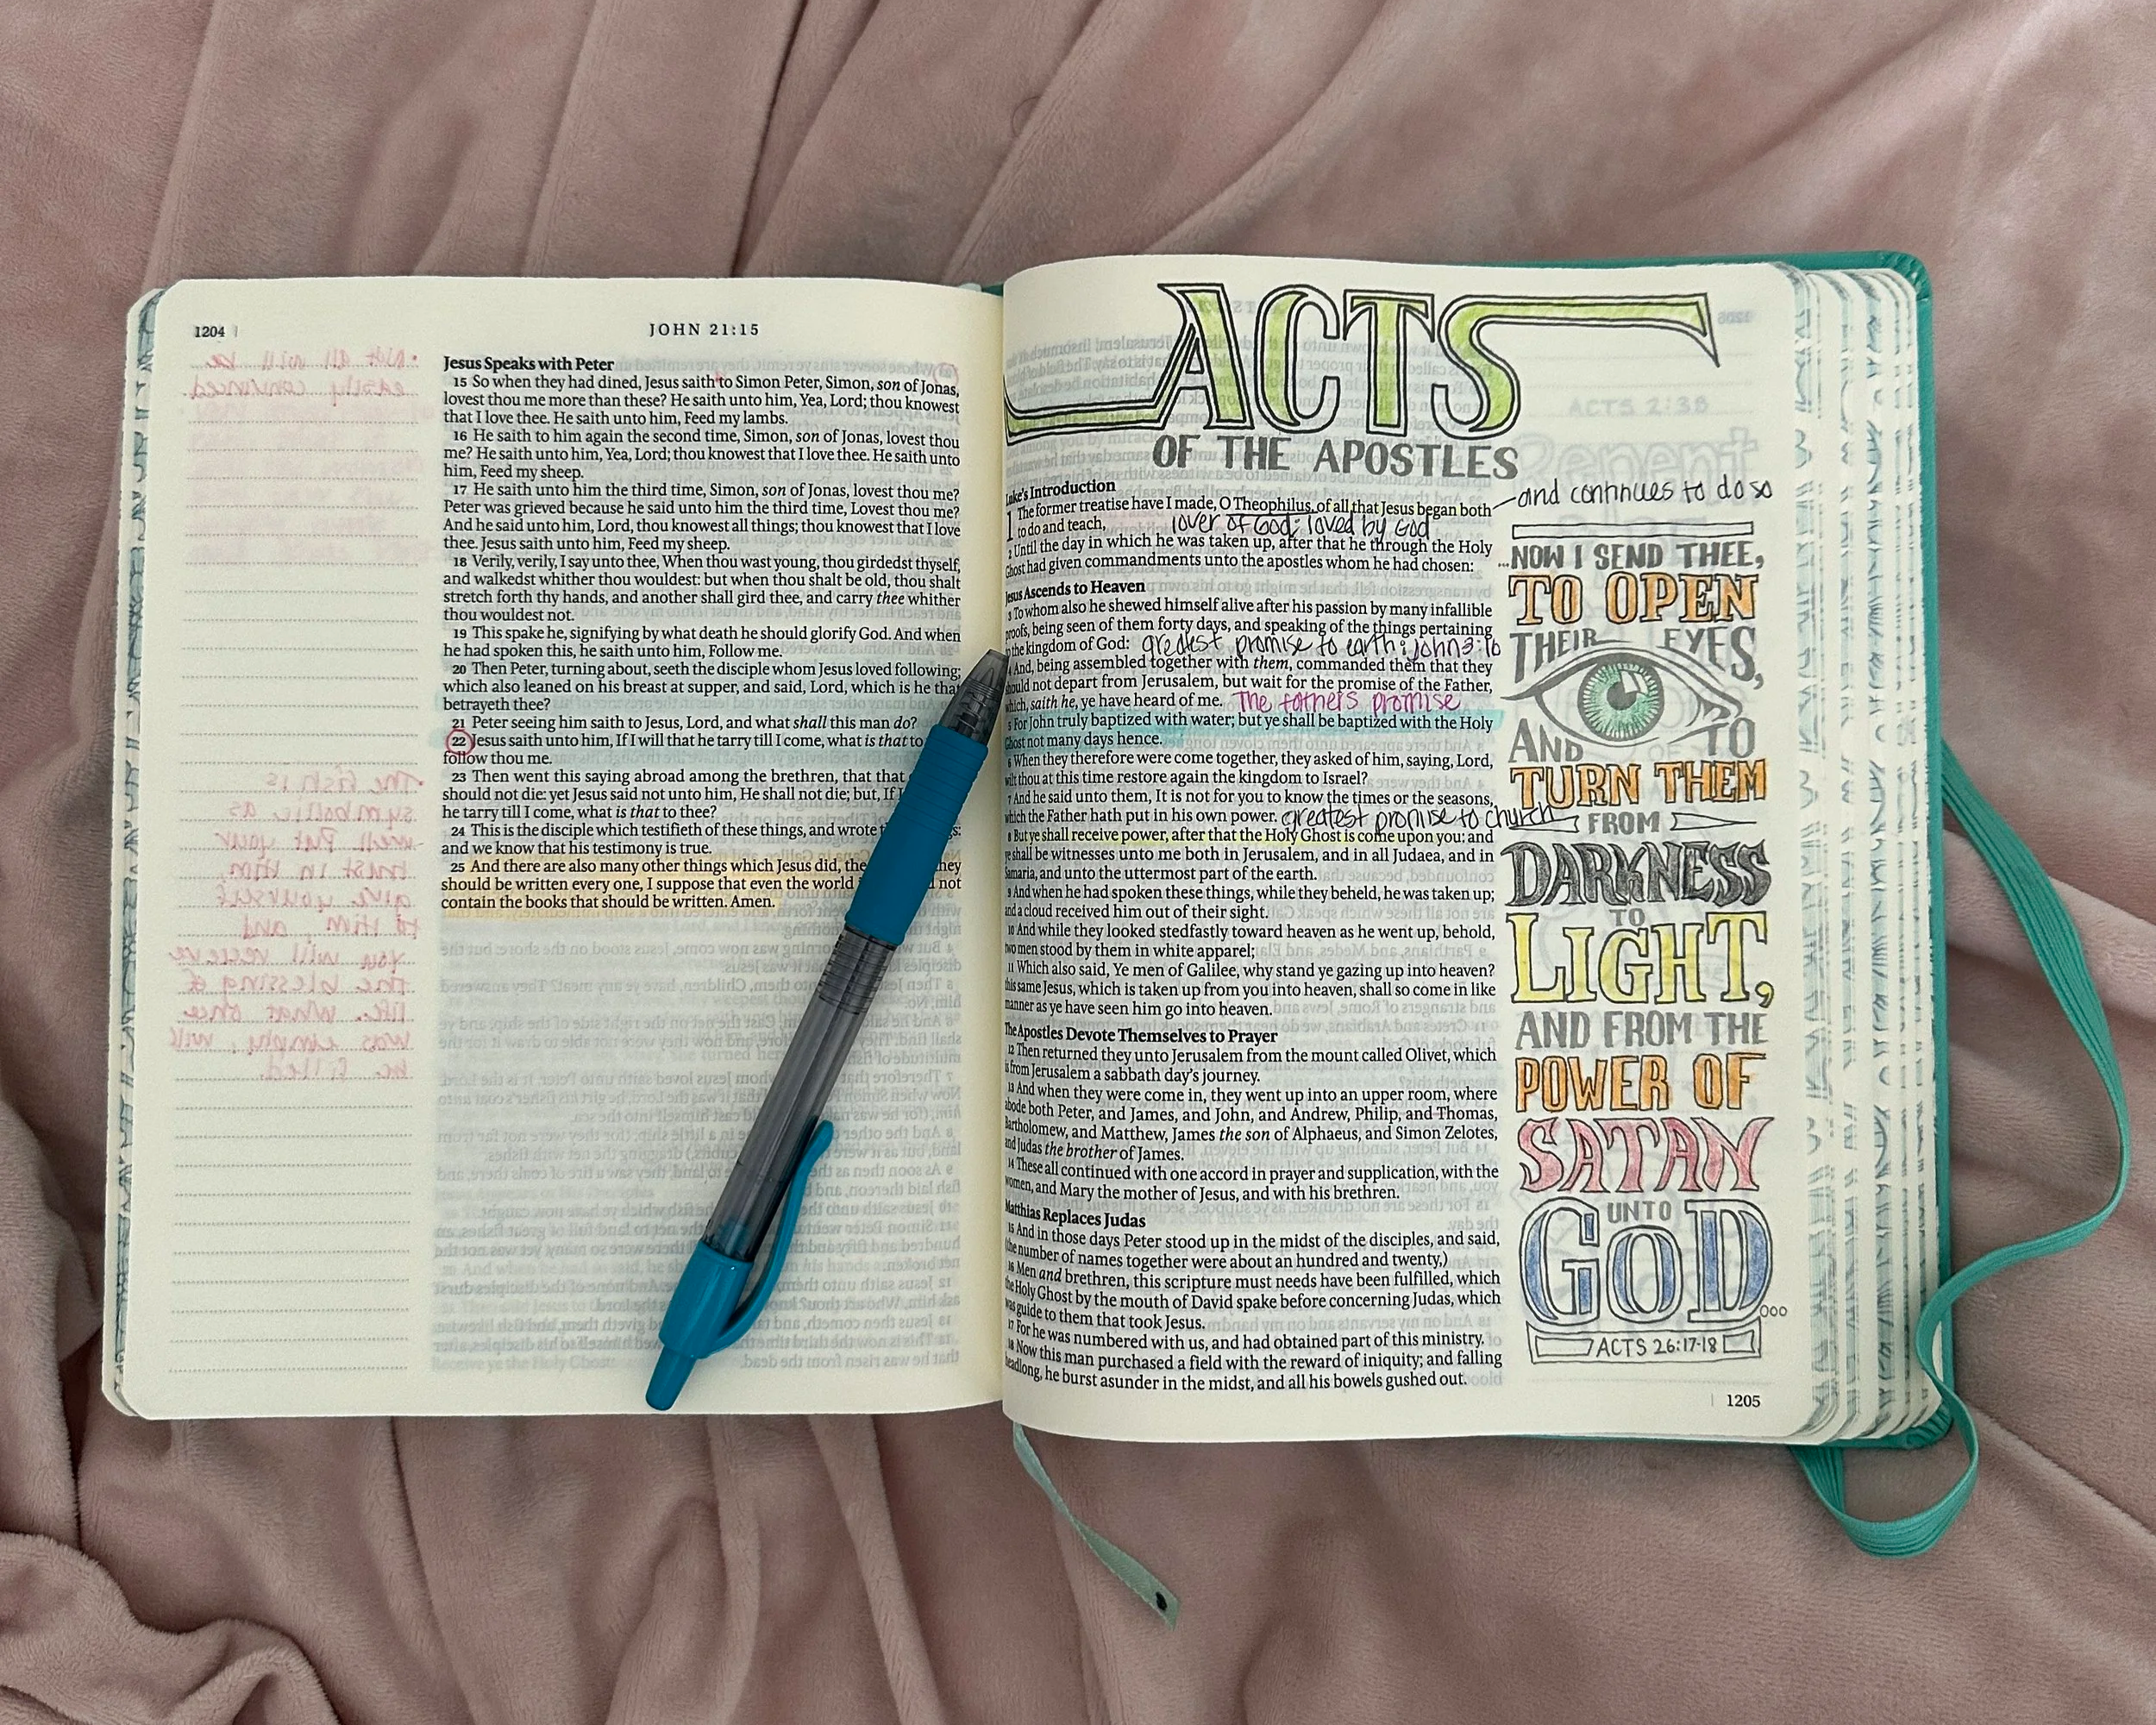 1204
JOHN 21:15
Jesus Speaks with Peter
15 So when they had dined, Jesus saith to Simon Peter, Simon, son of Jonas,
lovest thou me more than these? He saith unto him, Yea, Lord; thou knowest
that I love thee. He saith unto him, Feed my lambs.
16 He saith to him again the second time, Simon, son of Jonas, lovest thou
me? He saith unto him, Yea, Lord; thou knowest that I love thee. He saith unto
him, Feed my sheep.
17 He saith unto him the third time, Simon, son of Jonas, lovest thou me?
Peter was grieved because he said unto him the third time, Lovest thou me?
And he said unto him, Lord, thou knowest all things; thou knowest that I love
thee. Jesus saith unto him, Feed my sheep.
18 Verily, verily, I say unto thee, When thou wast young, thou girdedst thyself,
and walkedst whither thou wouldest: but when thou shalt be old, thou shalt
stretch forth thy hands, and another shall gird thee, and carry thee whither
thou wouldest not.
19 This spake he, signifying by what death he should glorify God. And when
he had spoken this, he saith unto him, Follow me.
20 Then Peter, turning about, seeth the disciple whom Jesus loved following;
which also leaned on his breast at supper, and said, Lord, which is he that
betrayeth thee?
21 Peter seeing him saith to Jesus, Lord, and what shall this man do?
22 Jesus saith unto him, If I will that he tarry till I come, what is that to
follow thou me.
23 Then went this saying abroad among the brethren, that that
should not die: yet Jesus said not unto him, He shall not die; but, If I
he tarry till I come, what is that to thee?
24 This is the disciple which testifieth of these things, and wrote
and we know that his testimony is true.
25 And there are also many other things which Jesus did, the
should be written every one, I suppose that even the world not
contain the books that should be written. Amen.
ACTS
OF THE APOSTLES
Luke's Introduction
1 The former treatise have I made, O Theophilus, of all that Jesus began both
and continues to do so
to do and teach,
lover of God; loved by God
2 Until the day in which he was taken up, after that he through the Holy
Ghost had given commandments unto the apostles whom he had chosen:
Jesus Ascends to Heaven
3 To whom also he shewed himself alive after his passion by many infallible
proofs, being seen of them forty days, and speaking of the things pertaining
to the kingdom of God: greatest promise to earth: John 3:16
4 And, being assembled together with them, commanded them that they
should not depart from Jerusalem, but wait for the promise of the Father,
which, saith he, ye have heard of me. The fathers promise
5 For John truly baptized with water; but ye shall be baptized with the Holy
Ghost not many days hence.
6 When they therefore were come together, they asked of him, saying, Lord,
wilt thou at this time restore again the kingdom to Israel?
7 And he said unto them, It is not for you to know the times or the seasons,
which the Father hath put in his own power. greatest promise to church
8 But ye shall receive power, after that the Holy Ghost is come upon you: and
ye shall be witnesses unto me both in Jerusalem, and in all Judaea, and in
Samaria, and unto the uttermost part of the earth.
9 And when he had spoken these things, while they beheld, he was taken up;
and a cloud received him out of their sight.
10 And while they looked stedfastly toward heaven as he went up, behold,
two men stood by them in white apparel;
11 Which also said, Ye men of Galilee, why stand ye gazing up into heaven?
this same Jesus, which is taken up from you into heaven, shall so come in like
manner as ye have seen him go into heaven.
The Apostles Devote Themselves to Prayer
12 Then returned they unto Jerusalem from the mount called Olivet, which
is from Jerusalem a sabbath day's journey.
13 And when they were come in, they went up into an upper room, where
abode both Peter, and James, and John, and Andrew, Philip, and Thomas,
Bartholomew, and Matthew, James the son of Alphaeus, and Simon Zelotes,
and Judas the brother of James.
14 These all continued with one accord in prayer and supplication, with the
women, and Mary the mother of Jesus, and with his brethren.
Matthias Replaces Judas
15 And in those days Peter stood up in the midst of the disciples, and said,
(the number of names together were about an hundred and twenty,)
16 Men and brethren, this scripture must needs have been fulfilled, which
the Holy Ghost by the mouth of David spake before concerning Judas, which
was guide to them that took Jesus.
17 For he was numbered with us, and had obtained part of this ministry.
18 Now this man purchased a field with the reward of iniquity; and falling
headlong, he burst asunder in the midst, and all his bowels gushed out.
...NOW I SEND THEE,
TO OPEN
THEIR EYES,
AND TO
TURN THEM
FROM
DARKNESS
TO
LIGHT,
AND FROM THE
POWER OF
SATAN
UNTO
GOD...
ACTS 26:17-18
1205